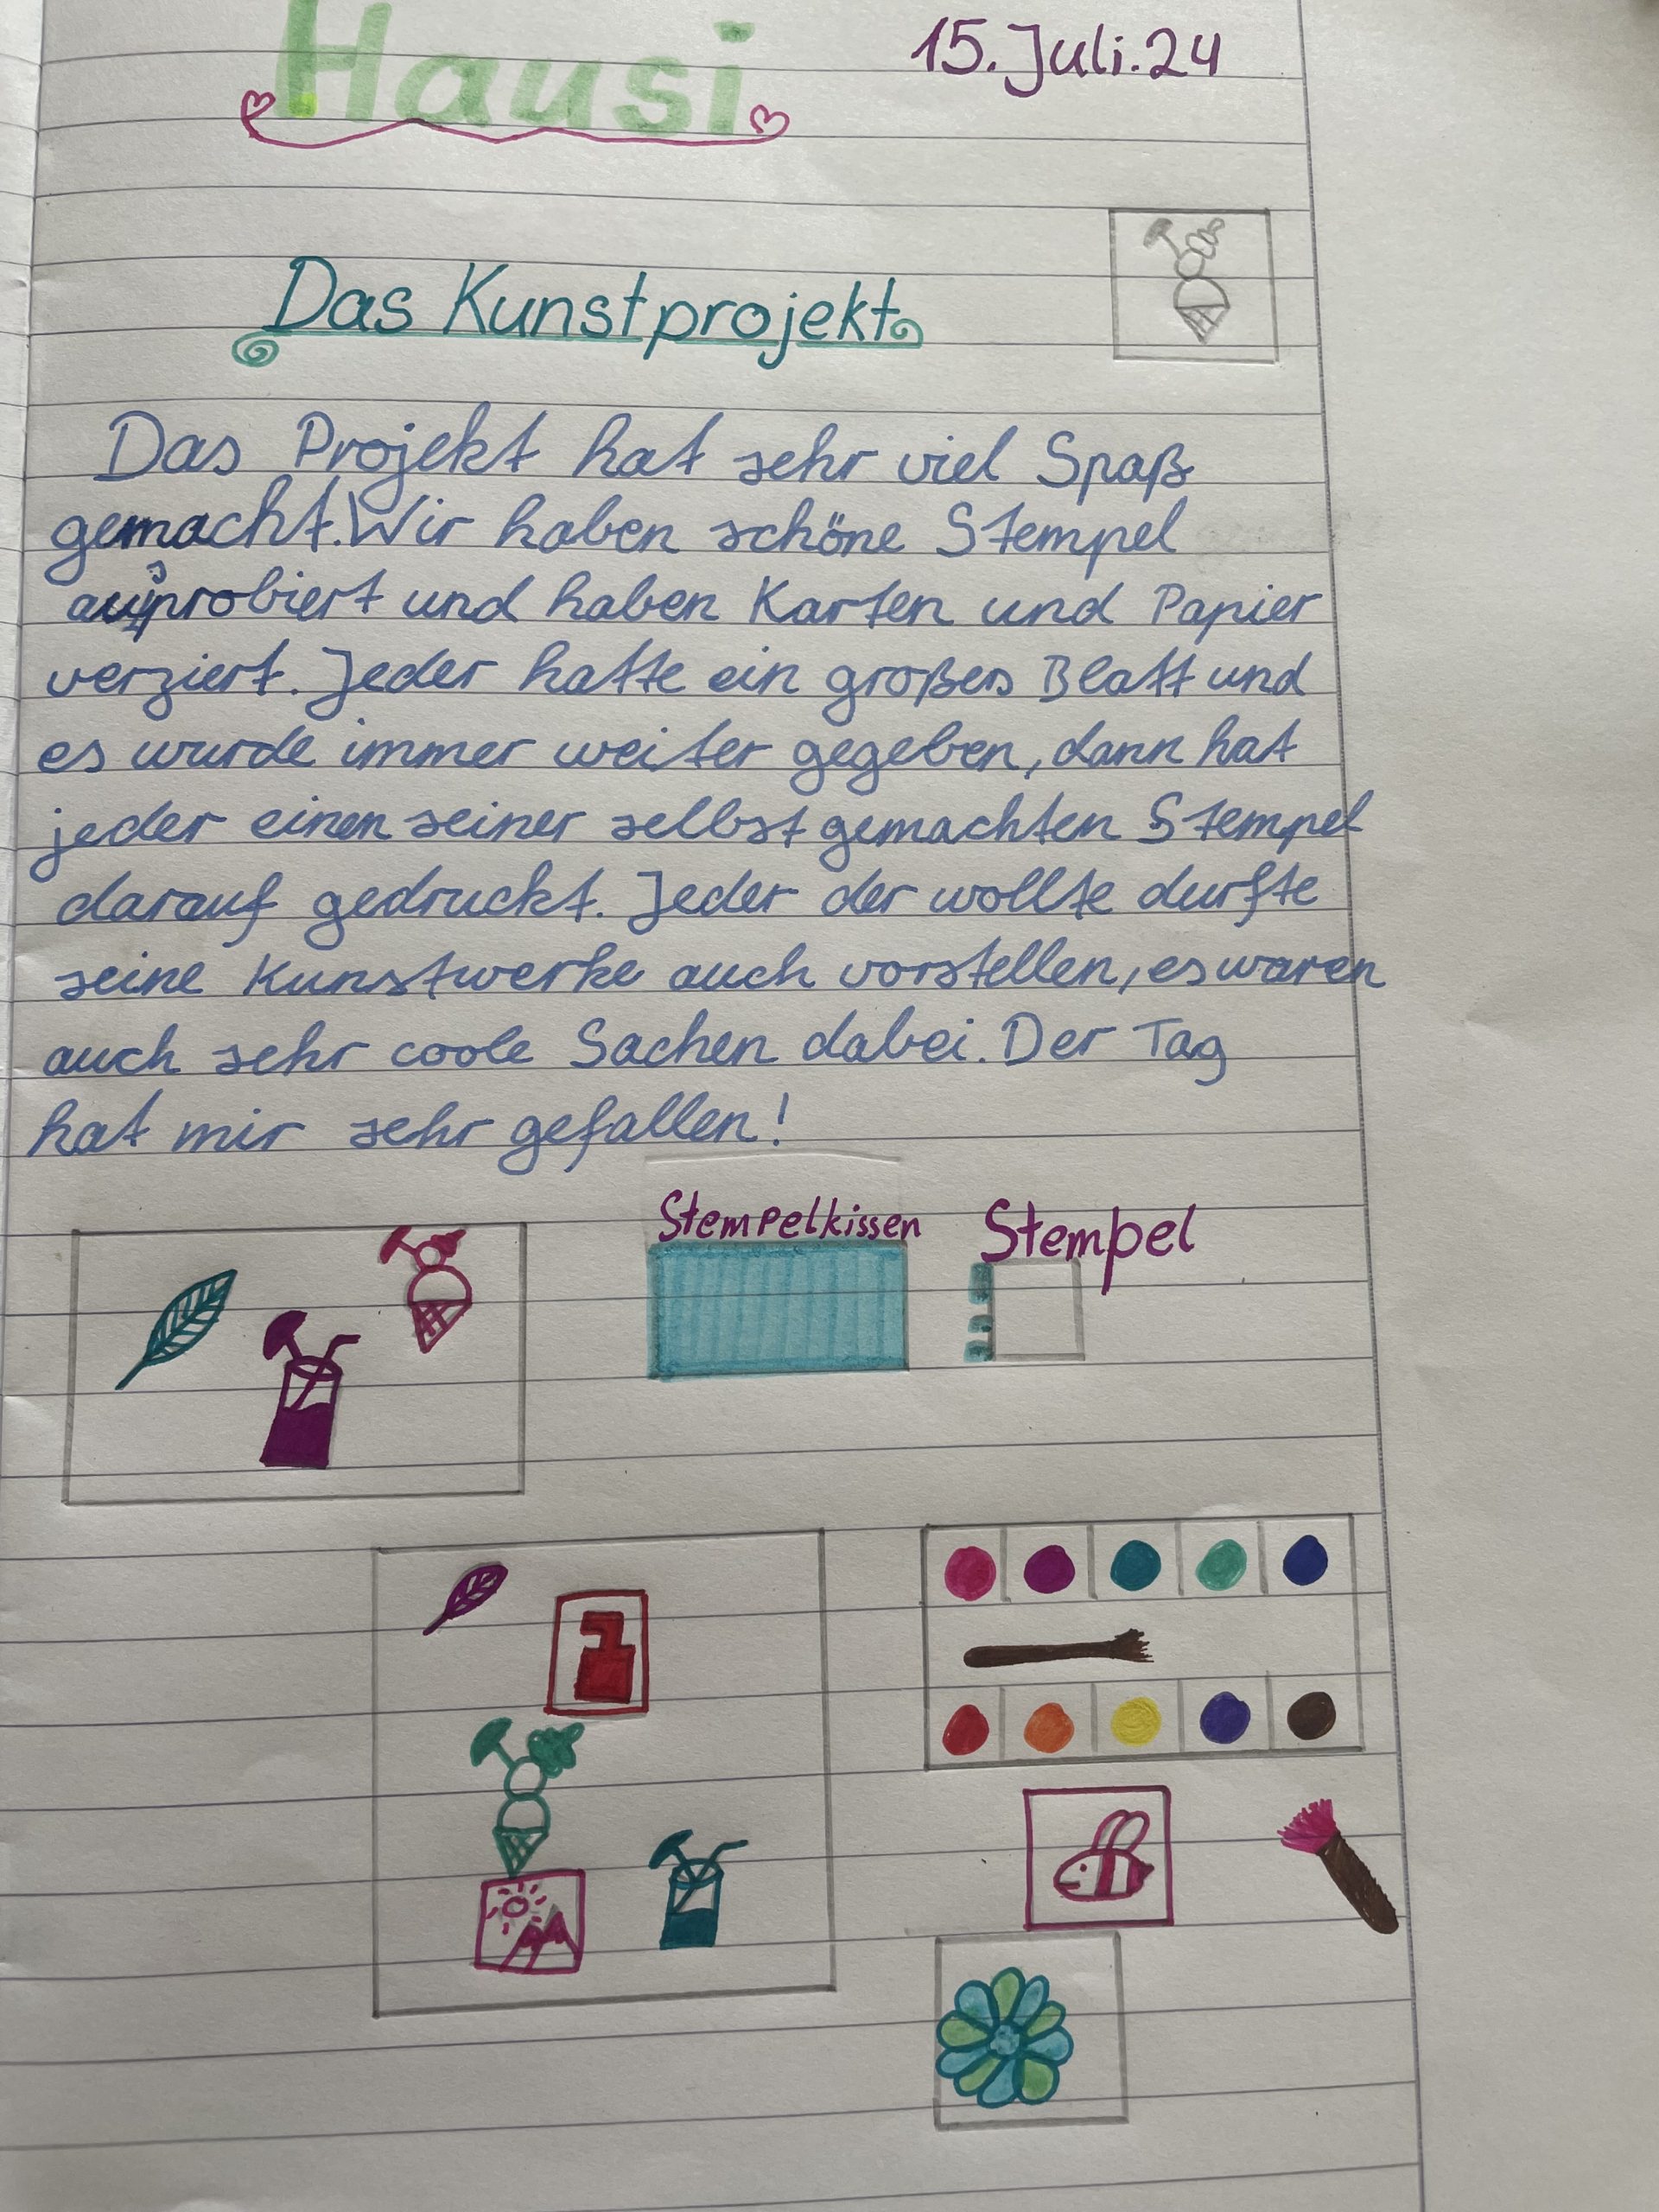 Hausi
15. Juli. 24
Das Kunstprojekt
Das Projekt hat sehr viel Spaß
gemacht. Wir haben schöne Stempel
ausprobiert und haben Karten und Papier
verziert. Jeder hatte ein großes Blatt und
es wurde immer weiter gegeben, dann hat
jeder einen seiner selbst gemachten Stempel
darauf gedruckt. Jeder der wollte durfte
seine Kunstwerke auch vorstellen, es waren
auch sehr coole Sachen dabei. Der Tag
hat mir sehr gefallen!
Stempelkissen
Stempel